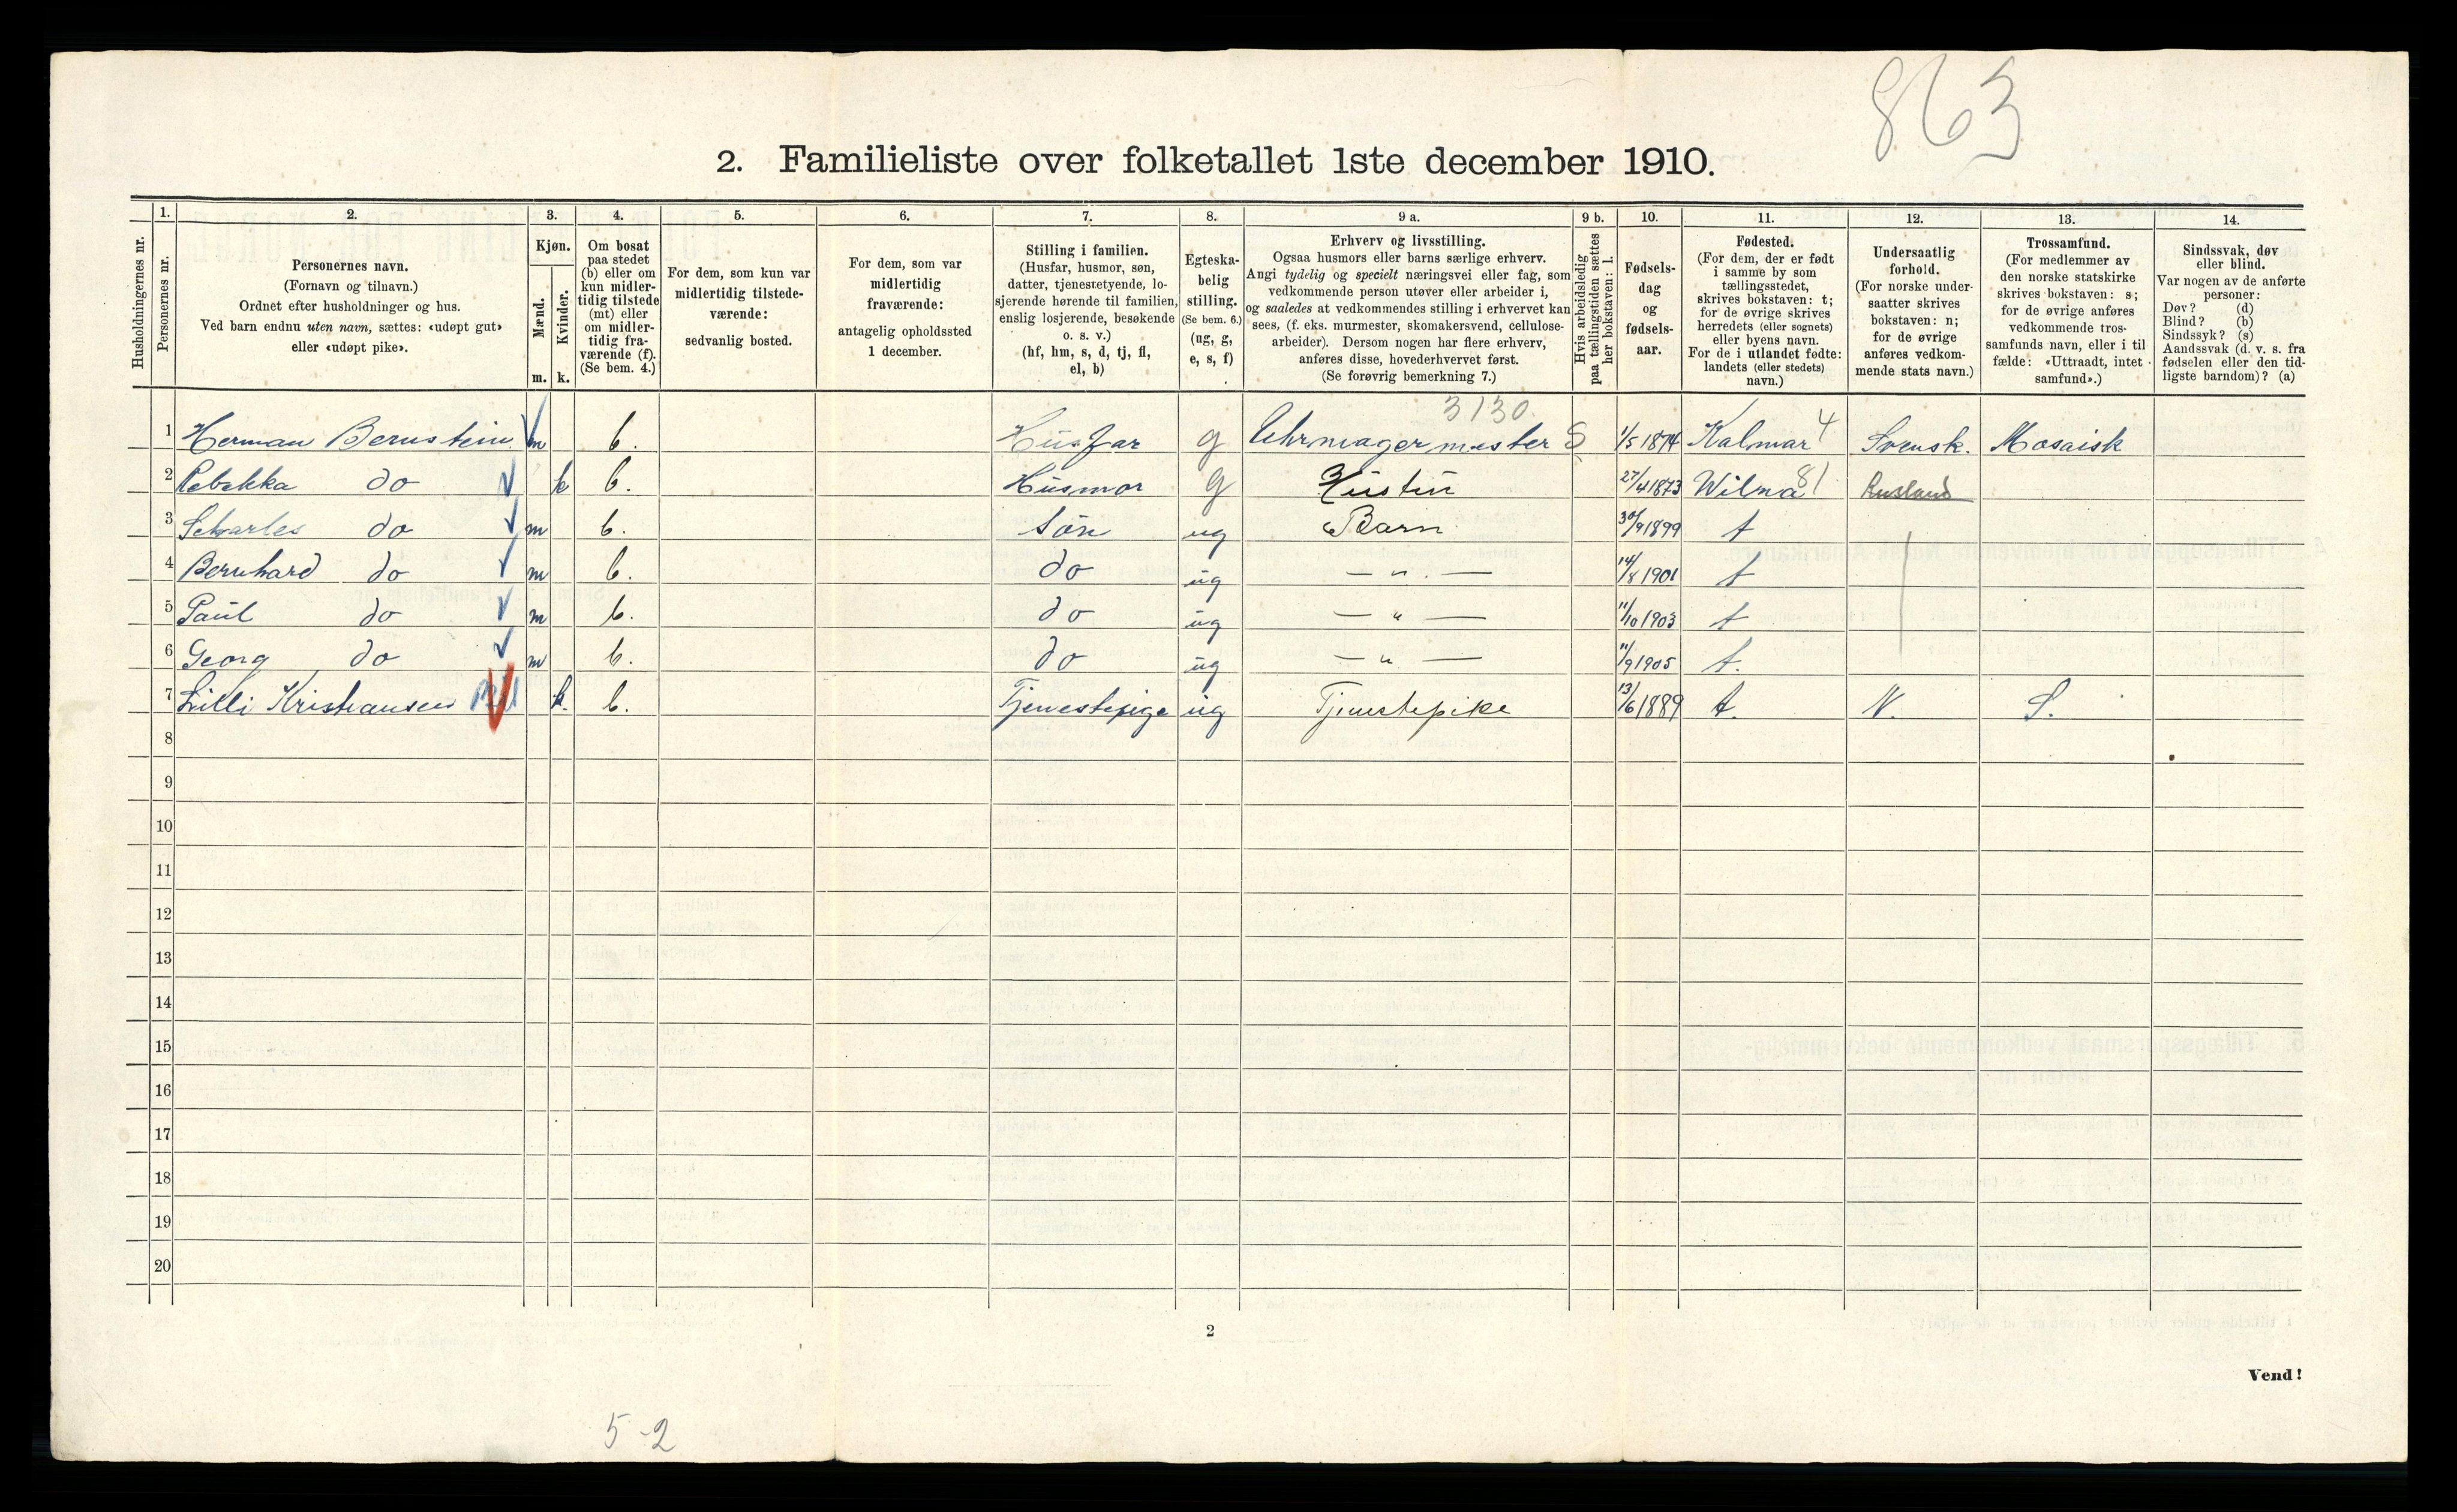 863
2. Familieliste over folketallet 1ste december 1910.
1. 2. 3. 4. 5. 6. 7. 8. 9 a. 9 b. 10. 11. 12. 13. 14.
Husholdningernes nr.
Personernes nr.
Personernes navn.
(Fornavn og tilnavn.)
Ordnet efter husholdninger og hus.
Ved barn endnu uten navn, sættes: «udøpt gut»
eller «udøpt pike».
Kjøn.
Mænd.
Kvinder.
m. k.
Om bosat
paa stedet
(b) eller om
kun midler-
tidig tilstede
(mt) eller
om midler-
tidig fra-
værende (f).
(Se bem. 4.)
For dem, som kun var
midlertidig tilstede-
værende:
sedvanlig bosted.
For dem, som var
midlertidig
fraværende:
antagelig opholdssted
1 december.
Stilling i familien.
(Husfar, husmor, søn,
datter, tjenestetyende, lo-
sjerende hørende til familien,
enslig losjerende, besøkende
o. s. v.)
(hf, hm, s, d, tj, fl,
el, b)
Egteska-
belig
stilling.
(Se bem. 6.)
(ug, g,
e, s, f)
Erhverv og livsstilling.
Ogsaa husmors eller barns særlige erhverv.
Angi tydelig og specielt næringsvei eller fag, som
vedkommende person utøver eller arbeider i,
og saaledes at vedkommendes stilling i erhvervet kan
sees, (f. eks. murmester, skomakersvend, cellulose-
arbeider). Dersom nogen har flere erhverv,
anføres disse, hovederhvervet først.
(Se forøvrig bemerkning 7.)
Hvis arbeidsledig
paa tællingstiden sættes
her bokstaven: l.
Fødsels-
dag
og
fødsels-
aar.
Fødested.
(For dem, der er født
i samme by som
tællingsstedet,
skrives bokstaven: t;
for de øvrige skrives
herredets (eller sognets)
eller byens navn.
For de i utlandet fødte:
landets (eller stedets)
navn.)
Undersaatlig
forhold.
(For norske under-
saatter skrives
bokstaven: n;
for de øvrige
anføres vedkom-
mende stats navn.)
Trossamfund.
(For medlemmer av
den norske statskirke
skrives bokstaven: s;
for de øvrige anføres
vedkommende tros-
samfunds navn, eller i til-
fælde: «Uttraadt, intet
samfund».)
Sindssvak, døv
eller blind.
Var nogen av de anførte
personer:
Døv? (d)
Blind? (b)
Sindssyk? (s)
Aandssvak (d. v. s. fra
fødselen eller den tid-
ligste barndom)? (a)
3130
1 Herman Bernstein m b. Husfar g Uhrmagermester S 1/5 1874 Kalmar 4 Svensk. Mosaisk
2 Rebekka do k b. Husmor g Hustru 27/4 1873 Wilna 81 Rusland
3 Scharles do m b. Søn ug Barn 30/9 1899 t
4 Bernhard do m b. do ug — " — 14/8 1901 t
5 Paul do m b. do ug — " — 11/10 1903 t
6 Georg do m b. do ug — " — 11/9 1905 t.
7 Lilli Kristiansen k. b. Tjenestepige ug Tjenestepike 13/6 1889 t. N. S.
8
9
10
11
12
13
14
15
16
17
18
19
20
2
Vend!
5-2